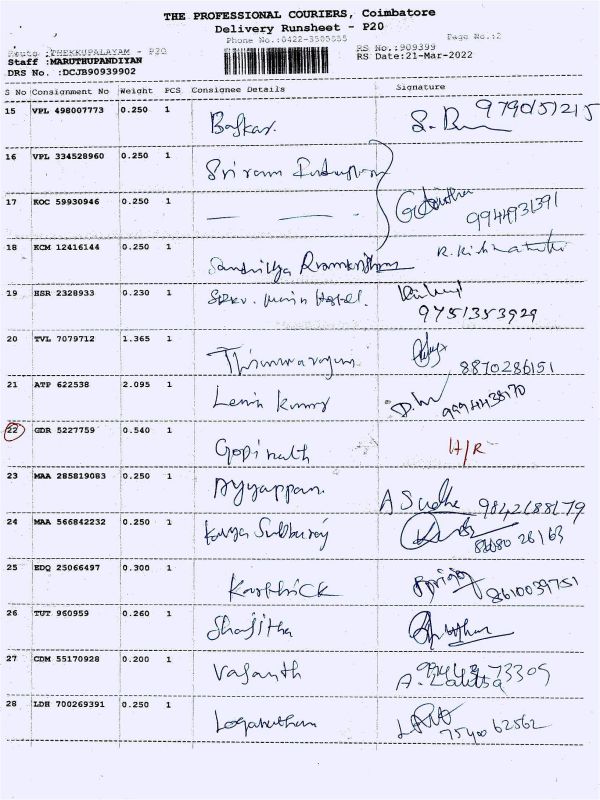 THE PROFESSIONAL COURIERS, Coimbatore
Delivery Runsheet - P20
Phone No.:0422-3505555 Page No.:2
Route :THEKKUPALAYAM - P20 RS No.:909399
Staff :MARUTHUPANDIYAN RS Date:21-Mar-2022
DRS No. :DCJB90939902
S No Consignment No Weight PCS Consignee Details Signature
15 VPL 498007773 0.250 1 Baskar. 9790151215
16 VPL 334528960 0.250 1 Sriram
17 KOC 59930946 0.250 1 — — — 9944931391
18 KCM 12416144 0.250 1
19 HSR 2328933 0.230 1 Hostel. 9751353929
20 TVL 7079712 1.365 1 8870286151
21 ATP 622538 2.095 1 Lenin Kumar 9994438170
22 GDR 5227759 0.540 1 Gopinath H/R
23 MAA 285819083 0.250 1 Ayyappan. A Sudha 9842688179
24 MAA 566842232 0.250 1 Kavya Subburaj
25 EDQ 25066497 0.300 1 Karthick 8610039751
26 TUT 960959 0.260 1 Shajitha
27 CDM 55170928 0.200 1 Vasanth 73309
28 LDH 700269391 0.250 1 Loganathan 75400 62562